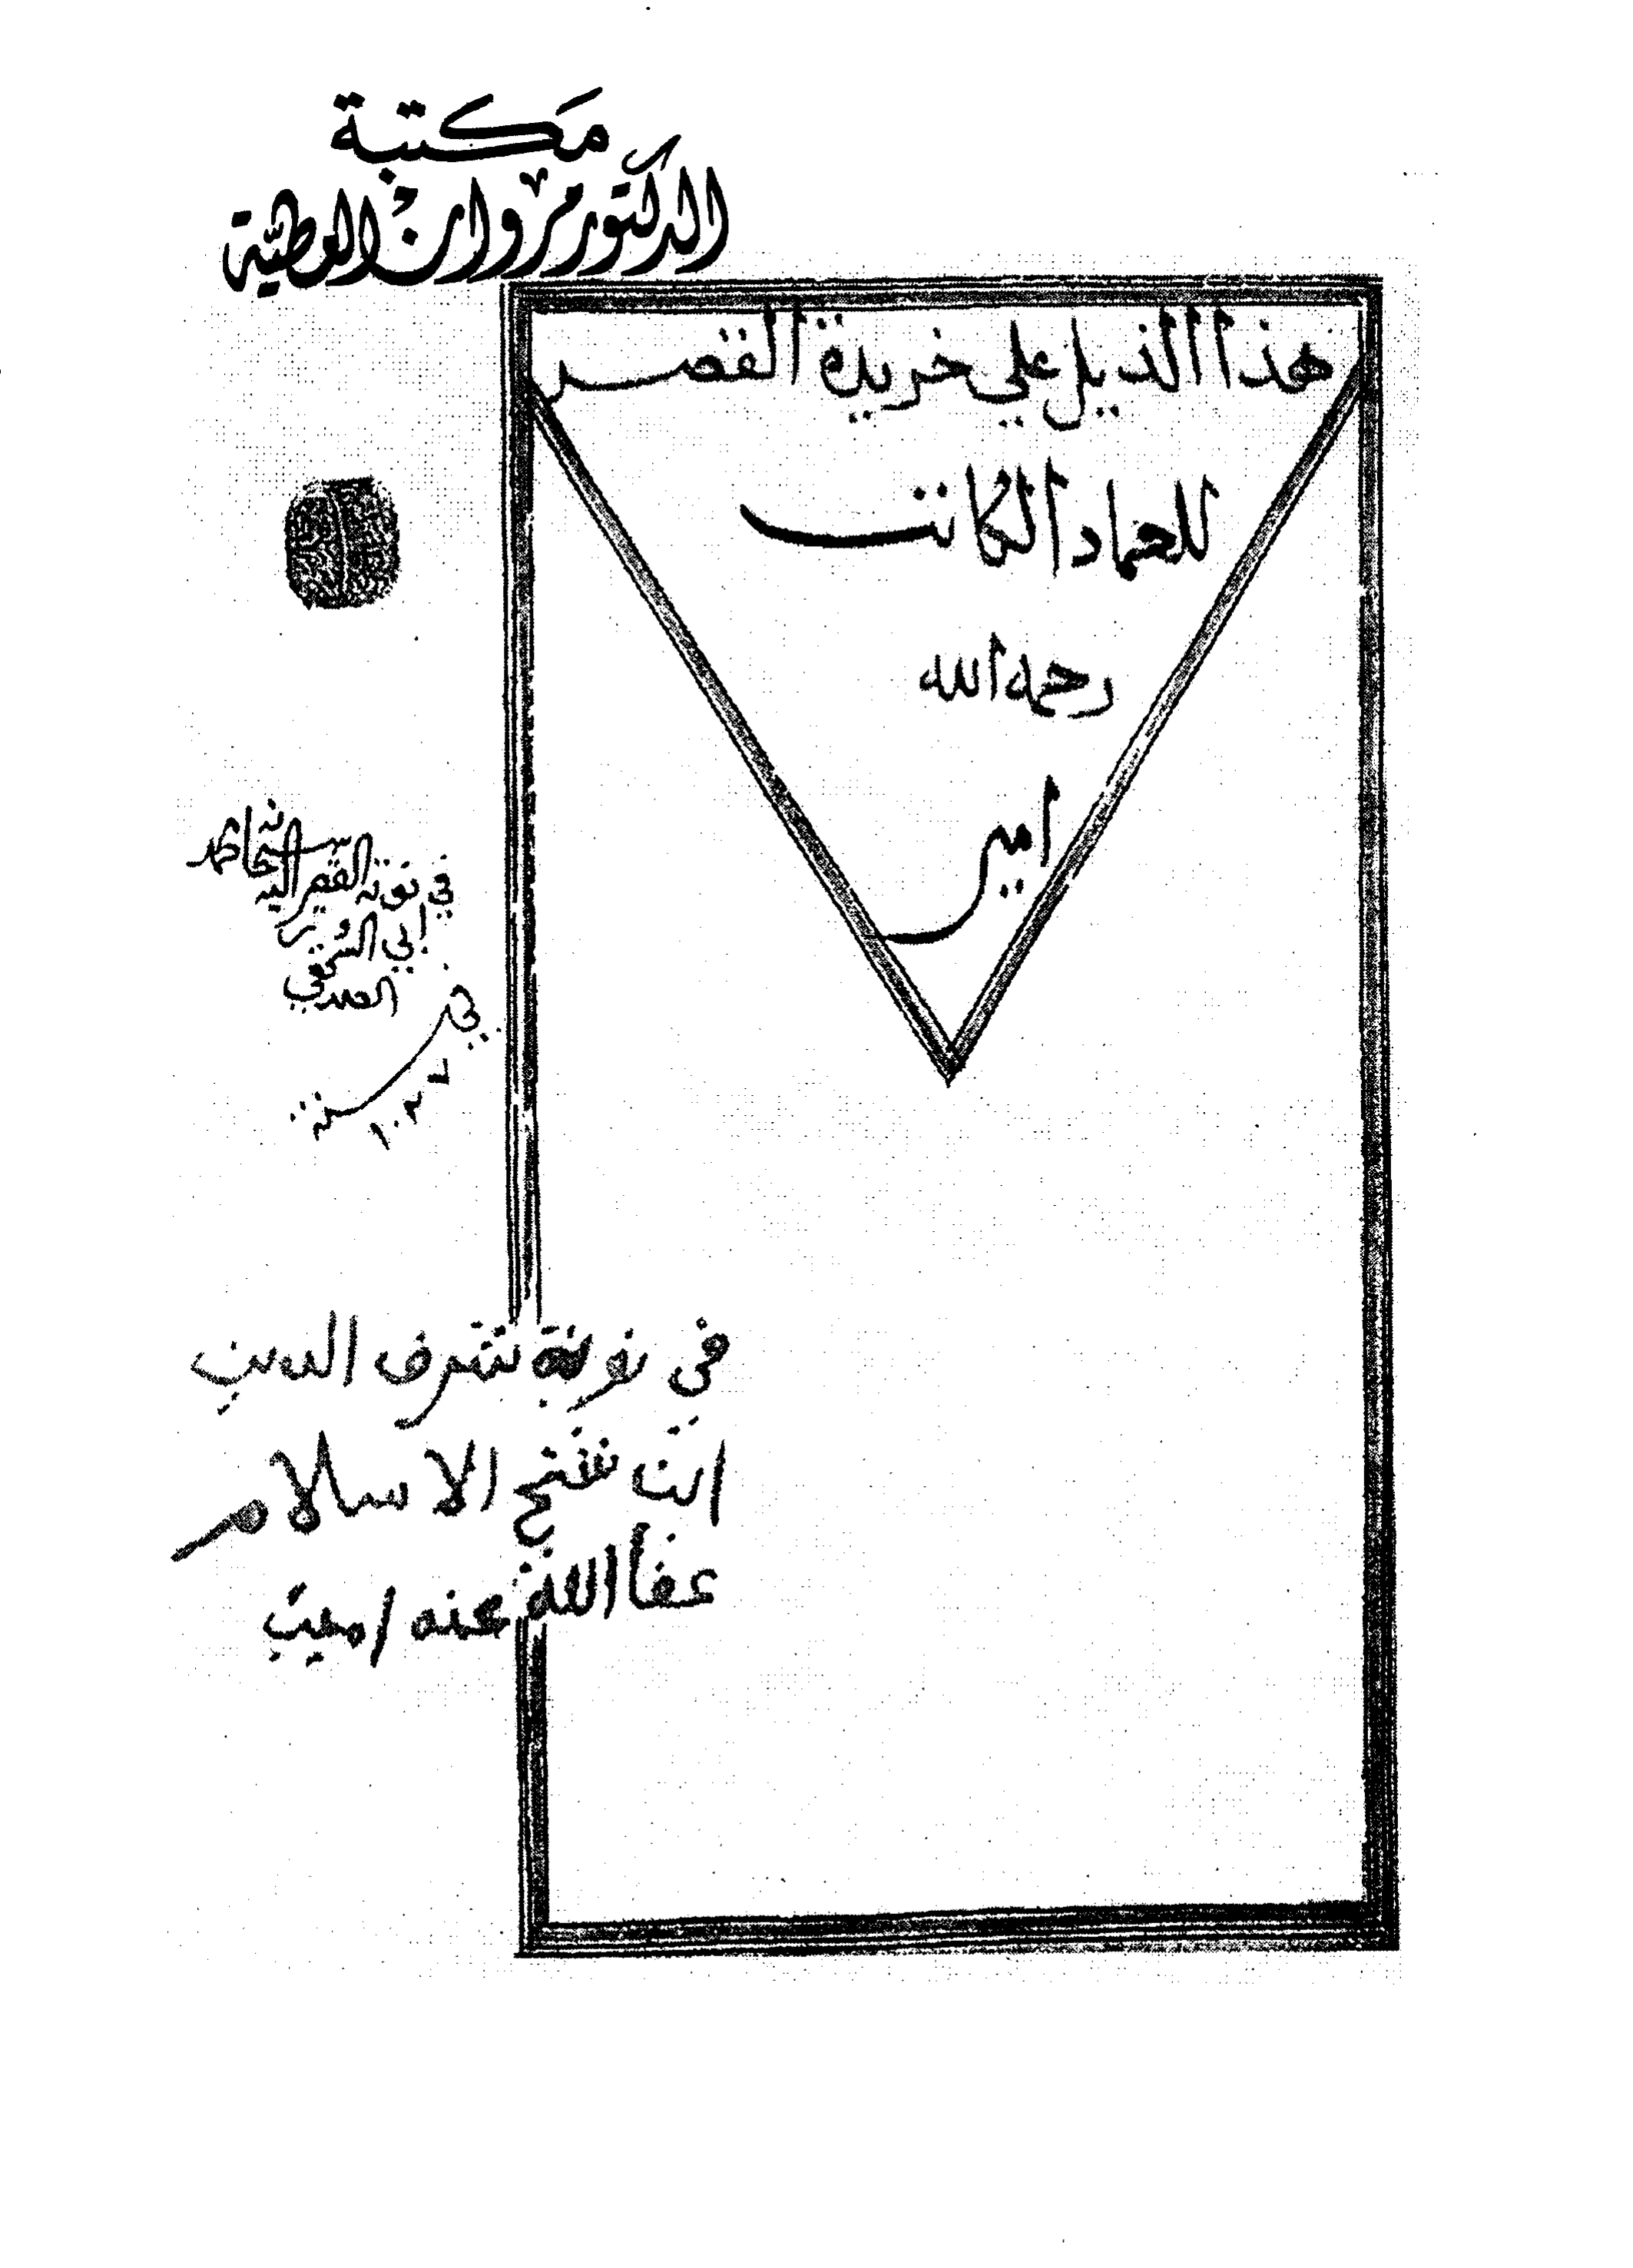 مكتبة
الدكتور مروان العطية
هذا الذيل على خريدة القصر
للعماد الكاتب
رحمه الله
امين
في نوبة الفقير اليه سبحانه
ابي السرور
الصديقي
في سنة
١٠٢٧
في نوبة شرف الدين
ابن شيخ الاسلام
عفا الله عنه امين